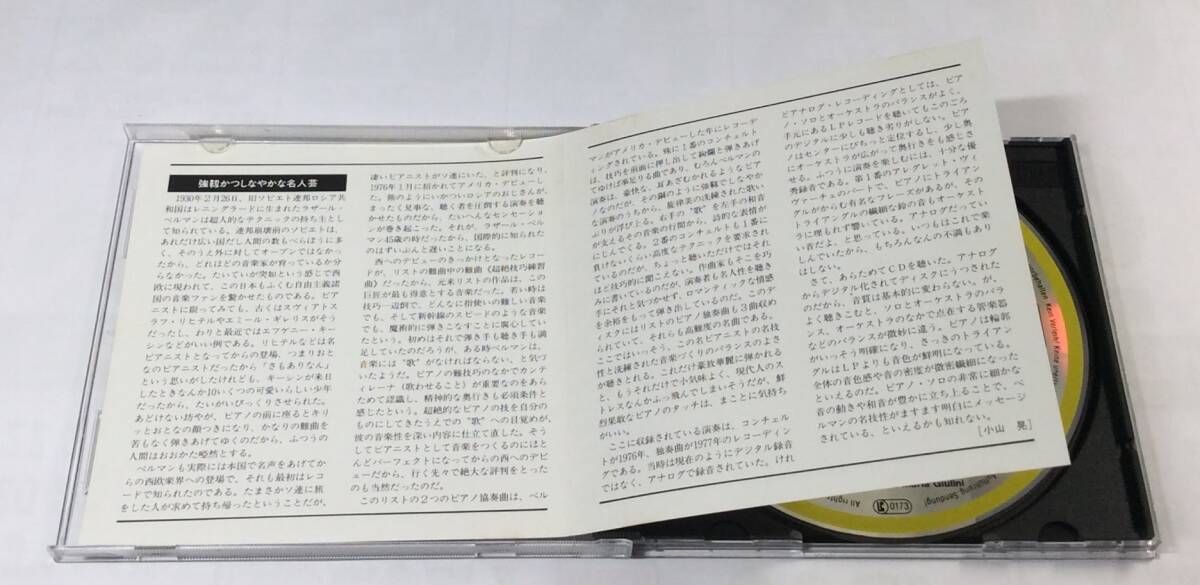 強靱かつしなやかな名人芸
1930年2月26日、旧ソビエト連邦ロシア共
和国はレニングラードに生まれたラザール・
ベルマンは超人的なテクニックの持ち主とし
て知られている。連邦崩壊前のソビエトは、
あれだけ広い国だし人間の数もべらぼうに多
く、そのうえ外に対してオープンではなかっ
たから、どれほどの音楽家が育っているか分
らなかった。たいていが突如という感じで西
欧に現われて、この日本もふくむ自由主義諸
国の音楽ファンを驚かせたものである。ピア
ニストに限ってみても、古くはスヴィアトス
ラフ・リヒテルやエミール・ギレリスがそう
だったし、わりと最近ではエフゲニー・キー
シンなどがいい例である。リヒテルなどは名
ピアニストとなってからの登場、つまりおとな
なのピアニストだったから「さもありなん」
という思いがしたけれども、キーシンが来日
したときなんか10いくつの可愛いらしい少年
だったから、たいがいびっくりさせられた。
あどけない坊やが、ピアノの前に座るとキリ
ッとおとなの顔つきになり、かなりの難曲を
苦もなく弾きあげてゆくのだから、ふつうの
人間はおおかた唖然とする。
ベルマンも実際には本国で名声をあげてか
らの西欧楽界への登場で、それも最初はレコ
ードで知られたのである。たまさかソ連に旅
をした人が求めて持ち帰ったということだが、
凄いピアニストがソ連にいた、と評判になり、
1976年1月に招かれてアメリカ・デビューし
た。熊のようにいかついロシアのおじさんが、
まったく見事な、聴く者を圧倒する演奏を聴
かせたものだから、たいへんなセンセーショ
ンが巻き起こった。それが、ラザール・ベル
マン45歳の時だったから、国際的に知られた
のはずいぶんと遅いことになる。
西へのデビューのきっかけとなったレコー
ドが、リストの難曲中の難曲《超絶技巧練習
曲》だったから、元来リストの作品は、この
巨匠が最も得意とする音楽だった。若い時は
技巧一辺倒で、どんなに指使いの難しい音楽
でも、そして新幹線のスピードのような音楽
でも、魔術的に弾きこなすことに腐心してい
たという。初めはそれで弾き手も聴き手も満
足していたのだろうが、ある時ベルマンは、
音楽には“歌”がなければならない、と気づ
いたようだ。ピアノの難技巧のなかでカンテ
ィレーナ（歌わせること）が重要なのをあら
ためて認識し、精神的な奥行きも必須条件と
感じたという。超絶的なピアノの技を自分の
ものにしてきたうえでの“歌”への目覚めが、
彼の音楽性を深い内容に仕立て直した。そう
してピアニストとして音楽をつくるのにほと
んどパーフェクトになってからの西へのデビ
ューだから、行く先々で絶大な評判をとった
のも当然だったのだ。
このリストの2つのピアノ協奏曲は、ベル
マンがアメリカ・デビューした年にレコーデ
ィングされている。殊に1番のコンチェルト
は、技巧を前面に押し出して絢爛と弾きあげ
てゆけば事足りる曲であり、むろんベルマンの
演奏は、豪快な、耳あざむかれるようなピア
ノなのだが、その鋼のように強靱でしなやか
な演奏のうちから、旋律美の洗練された歌い
ぶりが浮び上る。右手の“歌”を左手の和音
が支えるその音楽の行間から、詩的な表情が
こぼれでてくる。2番のコンチェルトも1番に
負けないくらい高度なテクニックを要求され
ているのだが、ちょっと聴いただけではそれ
ほど技巧的に聞こえない。作曲家もそこを巧
みに書いているのだが、演奏者も名人性を聴き
手にそれと気づかせず、ロマンティックな情感
を余裕をもって弾き出しているのだ。このデ
ィスクにはリストのピアノ独奏曲も3曲収め
られていて、それらも高難度の名曲である。
ここではいっそう、この名ピアニストの名技
性と洗練された音楽づくりのバランスのよさ
が聴きとれる。これだけ豪放華麗に弾かれる
と、もうそれだけで小気味よく、現代人のス
トレスなんかふっ飛んでしまいそうだが、鮮
烈果敢なピアノのタッチは、まことに気持ち
がいい。
ここに収録されている演奏は、コンチェル
トが1976年、独奏曲が1977年のレコーディン
グである。当時は現在のようにデジタル録音
ではなく、アナログで録音されていた。けれ
どアナログ・レコーディングとしては、ピア
ノ・ソロとオーケストラのバランスがよく、
手元にあるLPレコードを聴いてもこのごろ
のデジタルに少しも聴き劣りがしない。ピア
ノはセンターにぴちっと定位するし、少し奥
にオーケストラが広がって奥行きをも感じさ
せる。ふつうに演奏を楽しむには、十分な優
秀録音である。第1番のアレグレット・ヴィ
ヴァーチェのパートで、ピアノにトライアン
グルがからむ有名なフレーズがあるが、その
トライアングルの繊細な鈴の音もオーケスト
ラに埋もれず響いている。アナログだってい
い音だよ、と思っている。いつもはこれで楽
しんでいたから、もちろんなんの不満もあり
はしない。
さて、あらためてCDを聴いた。アナログ
からデジタル化されてディスクにうつされた
のだから、音質は基本的に変わらない。が、
よく聴きこむと、ソロとオーケストラのバラ
ンス、オーケストラのなかで点在する管楽器
などのバランスが微妙に違う。ピアノは輪郭
がいっそう明確になり、さっきのトライアン
グルはLPよりも音色が鮮明になっている。
全体の音色感や音の密度が微密繊細になった
といえるのだ。ピアノ・ソロの非常に細かな
音の動きや和音が豊かに立ち上ることで、ベ
ルマンの名技性がますます明白にメッセージ
されている、といえるかも知れない。
［小山　晃］
Giulini
0173
All right